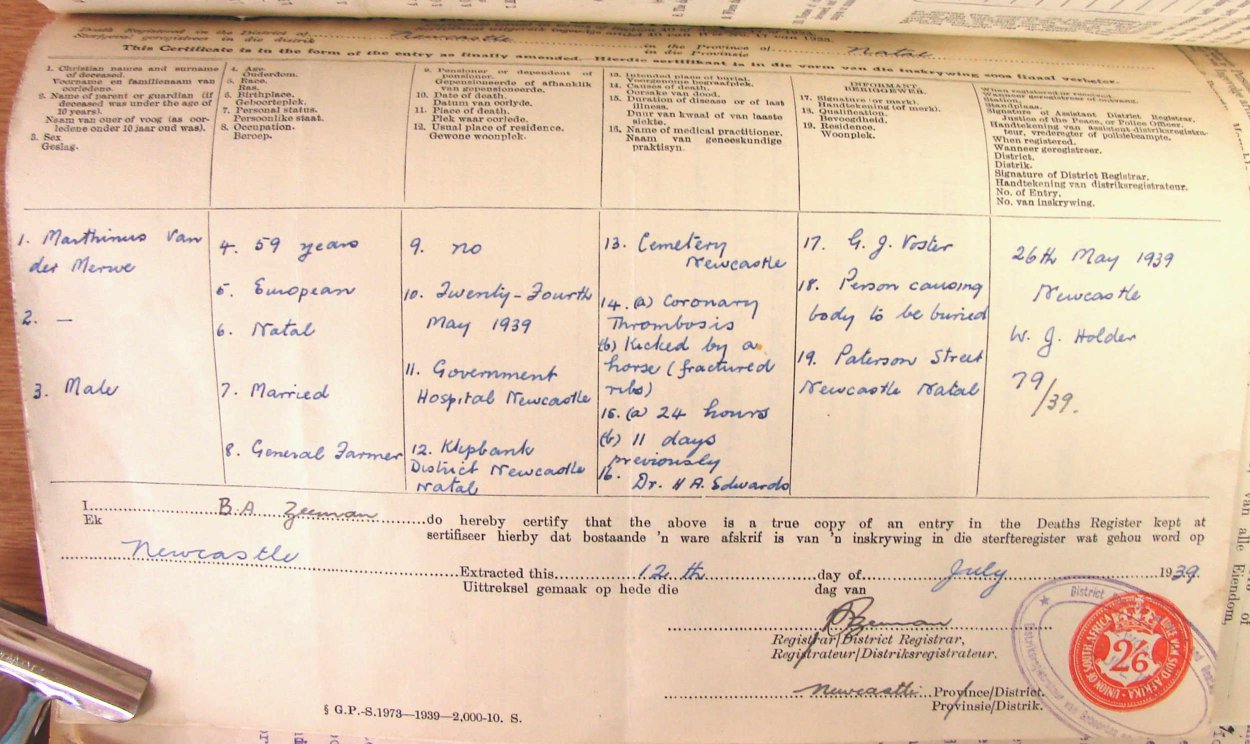 Death Registered in the District of Newcastle in the Province of Natal
Sterfgeval geregistreer in die distrik in die Provinsie
This Certificate is in the form of the entry as finally amended. Hierdie sertifikaat is in die vorm van die inskrywing soos finaal verbeter.
1. Christian names and surname
of deceased.
Voorname en familienaam van
oorledene.
2. Name of parent or guardian (if
deceased was under the age of
10 years).
Naam van ouer of voog (as oor-
ledene onder 10 jaar oud was).
3. Sex
Geslag.
4. Age.
Ouderdom.
5. Race.
Ras.
6. Birthplace.
Geboorteplek.
7. Personal status.
Persoonlike staat.
8. Occupation.
Beroep.
9. Pensioner or dependent of
pensioner.
Gepensioneerde of afhanklik
van gepensioneerde.
10. Date of death.
Datum van oorlyde.
11. Place of death.
Plek waar oorlede.
12. Usual place of residence.
Gewone woonplek.
13. Intended place of burial.
Voorgenome begraafplek.
14. Causes of death.
Oorsake van dood.
15. Duration of disease or of last
illness.
Duur van kwaal of van laaste
siekte.
16. Name of medical practitioner.
Naam van geneeskundige
praktisyn.
INFORMANT.
BERIGGEWER.
17. Signature (or mark).
Handtekening (of merk).
18. Qualification.
Bevoegdheid.
19. Residence.
Woonplek.
When registered or received.
Wanneer geregistreer of ontvang.
Station.
Standplaas.
Signature of Assistant District Registrar,
Justice of the Peace, or Police Officer.
Handtekening van assistent-distriksregistra-
teur, vrederegter of polisiebeampte.
When registered.
Wanneer geregistreer.
District.
Distrik.
Signature of District Registrar.
Handtekening van distriksregistrateur.
No. of Entry.
No. van inskrywing.
1. Marthinus Van
der Merwe
2. —
3. Male
4. 59 years
5. European
6. Natal
7. Married
8. General Farmer
9. no
10. Twenty-Fourth
May 1939
11. Government
Hospital Newcastle
12. Klipbank
District Newcastle
Natal
13. Cemetery
Newcastle
14. (a) Coronary
Thrombosis
(b) Kicked by a
horse (fractured
ribs)
15. (a) 24 hours
(b) 11 days
previously
16. Dr. H A. Edwards
17. G. J. Voster
18. Person causing
body to be buried
19. Paterson Street
Newcastle Natal
26th May 1939
Newcastle
W. J. Holder
79/39.
I B.A. Zeeman do hereby certify that the above is a true copy of an entry in the Deaths Register kept at
Ek sertifiseer hierby dat bostaande 'n ware afskrif is van 'n inskrywing in die sterfteregister wat gehou word op
Newcastle
Extracted this 12th day of July 1939
Uittreksel gemaak op hede die dag van
B Zeeman
Registrar/District Registrar.
Registrateur/Distriksregistrateur.
Newcastle Province/District.
Provinsie/Distrik.
UNION OF SOUTH AFRICA
UNIE VAN SUID AFRIKA
2/6
§ G.P.-S.1973—1939—2,000-10. S.
van alle Eiendom,